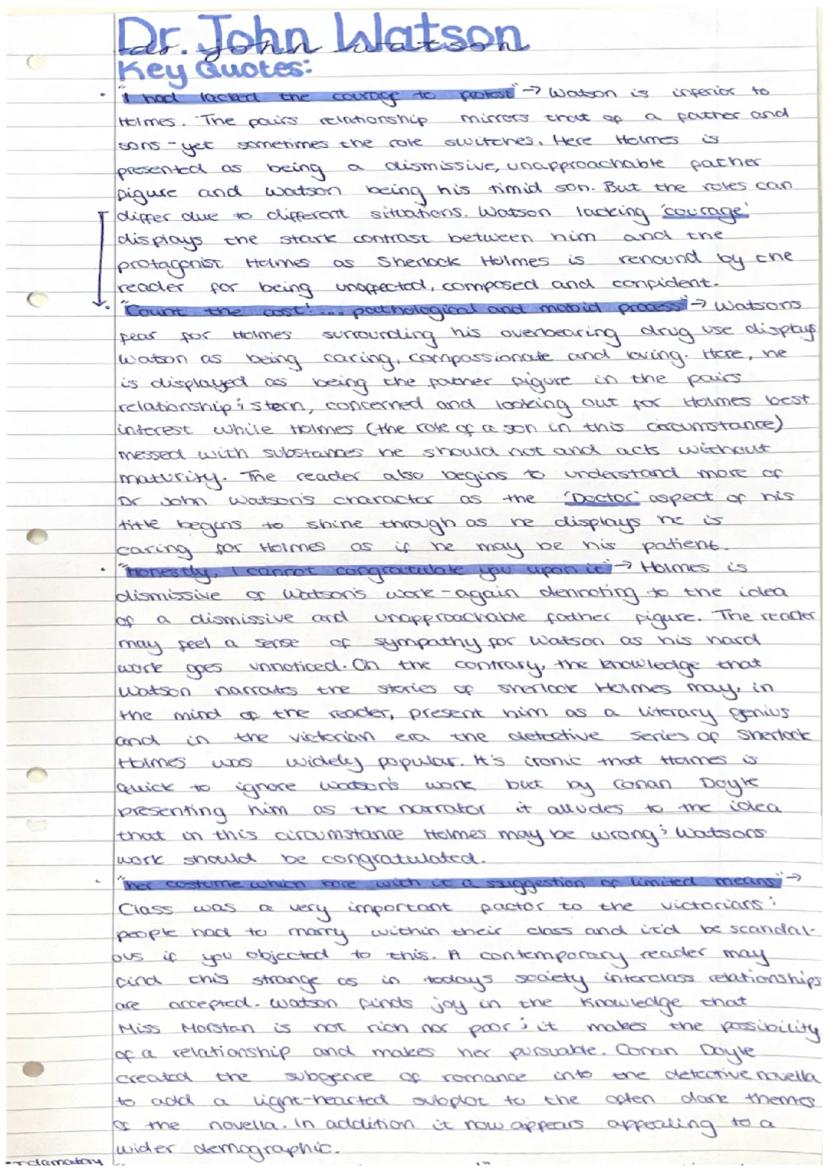 Dr. John Watson
dr. john watson
Key Quotes:
• "I had lacked the courage to protest" → Watson is inferior to
Holmes. The pairs relationship mirrors that of a father and
sons - yet sometimes the role switches. Here Holmes is
presented as being a dismissive, unapproachable father
figure and Watson being his timid son. But the roles can
differ due to different situations. Watson lacking 'courage'
displays the stark contrast between him and the
protagonist Holmes as Sherlock Holmes is renound by the
reader for being unaffected, composed and confident.
• "Count the cost! ... pathological and mobid process" → Watsons
fear for Holmes surrounding his overbearing drug use displays
Watson as being caring, compassionate and loving. Here, he
is displayed as being the father figure in the pairs
relationship; stern, concerned and looking out for Holmes best
interest while Holmes (the role of a son in this circumstance)
messed with substances he should not and acts without
maturity. The reader also begins to understand more of
Dr John Watson's character as the 'Doctor' aspect of his
title begins to shine through as he displays he is
caring for Holmes as if he may be his patient.
• "honestly, I cannot congratulate you upon it" → Holmes is
dismissive of Watson's work - again dennoting to the idea
of a dismissive and unapproachable father figure. The reader
may feel a sense of sympathy for Watson as his hard
work goes unnoticed. On the contrary, the knowledge that
Watson narrates the stories of Sherlock Holmes may, in
the mind of the reader, present him as a literary genius
and in the victorian era the detective series of Sherlock
Holmes was widely popular. It's ironic that Holmes is
quick to ignore Watson's work but by Conan Doyle
presenting him as the narrator it alludes to the idea
that in this circumstance Holmes may be wrong; Watsons
work should be congratulated.
• "her costume which bore with it a suggestion of limited means" →
Class was a very important factor to the victorians;
people had to marry within their class and it'd be scandal-
ous if you objected to this. A contemporary reader may
find this strange as in todays society interclass relationships
are accepted. Watson finds joy in the knowledge that
Miss Morstan is not rich nor poor; it makes the possibility
of a relationship and makes her pursuable. Conan Doyle
created the subgenre of romance into the detective novella
to add a light-hearted subplot to the often dark themes
of the novella. In addition it now appears appealing to a
wider demographic.